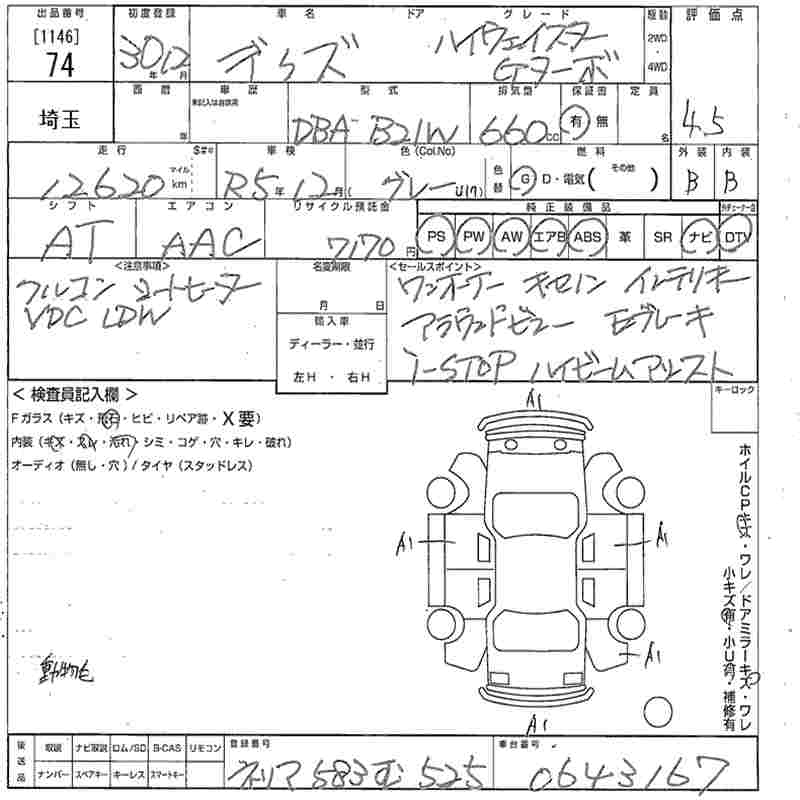 出品番号 初度登録 車名 ドア グレード 駆動 評価点
[1146] 74 30年12月 デイズ ハイウェイスター Gターボ 2WD・4WD 4.5
西暦 車歴 型式 排気量 保証書 定員
埼玉 年 未記入は自家用 DBA-B21W 660cc 有 無 名
走行 車検 色(Col.No) 燃料 外装 内装
12620 マイル km R5年12月( グレー 色替 G D・電気( その他 ) B B
シフト エアコン リサイクル預託金 純正装備品
AT AAC 7170円 PS PW AW エアB ABS 革 SR ナビ DTV
<注意事項> 名変期限 <セールスポイント>
フルコン シートヒーター 月 日 ワンオーナー キセノン インテリキー
VDC LDW 輸入車 アラウンドビュー Eブレーキ
ディーラー・並行
左H・右H i-STOP ハイビームアシスト
キーロック
<検査員記入欄>
Fガラス(キズ・飛石・ヒビ・リペア跡・X要)
内装(キズ・スレ・汚れ・シミ・コゲ・穴・キレ・破れ)
オーディオ(無し・穴)/タイヤ(スタッドレス)
A1
A1 A1
A1
A1
ホイルCPキズ・ワレ/ドアミラーキズ・ワレ
小キズ有・小U有・補修有
動物毛
後送品 取説 ナビ取説 ロム/SD B-CAS リモコン 登録番号 車台番号
ナンバー スペアキー キーレス スマートキー ネリマ 583 む 525 0643167